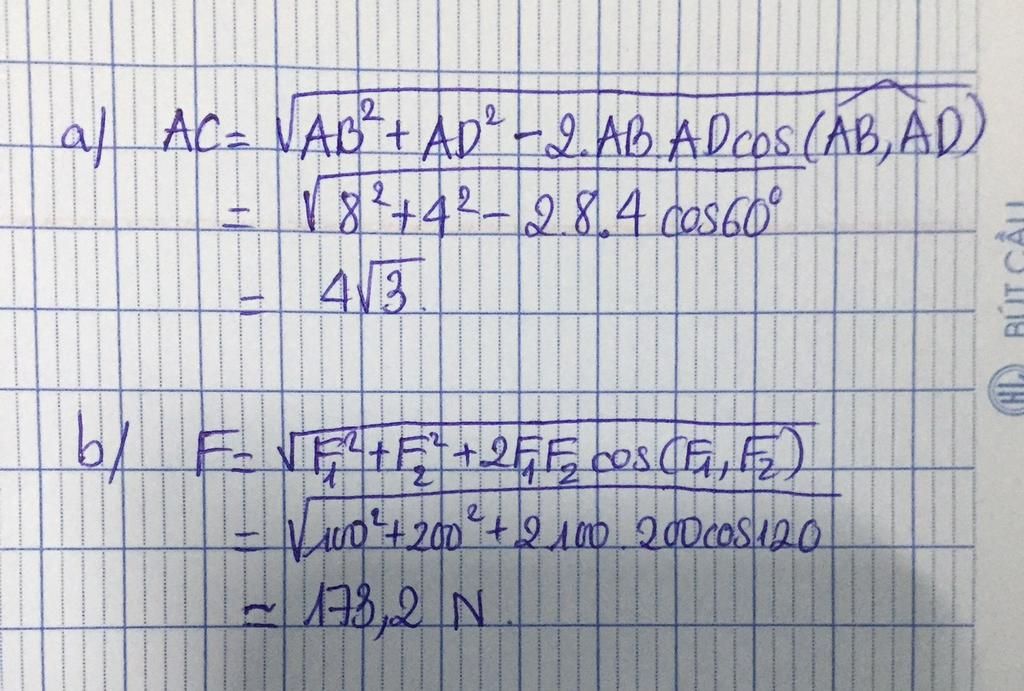 a/ AC = √AB² + AD² - 2.AB.AD cos(AB, AD)
= √8² + 4² - 2.8.4 cos60°
= 4√3.
b/ F = √F₁² + F₂² + 2F₁F₂ cos(F₁, F₂)
= √100² + 200² + 2.100.200cos120
≃ 173,2 N.
BÚT CẦU